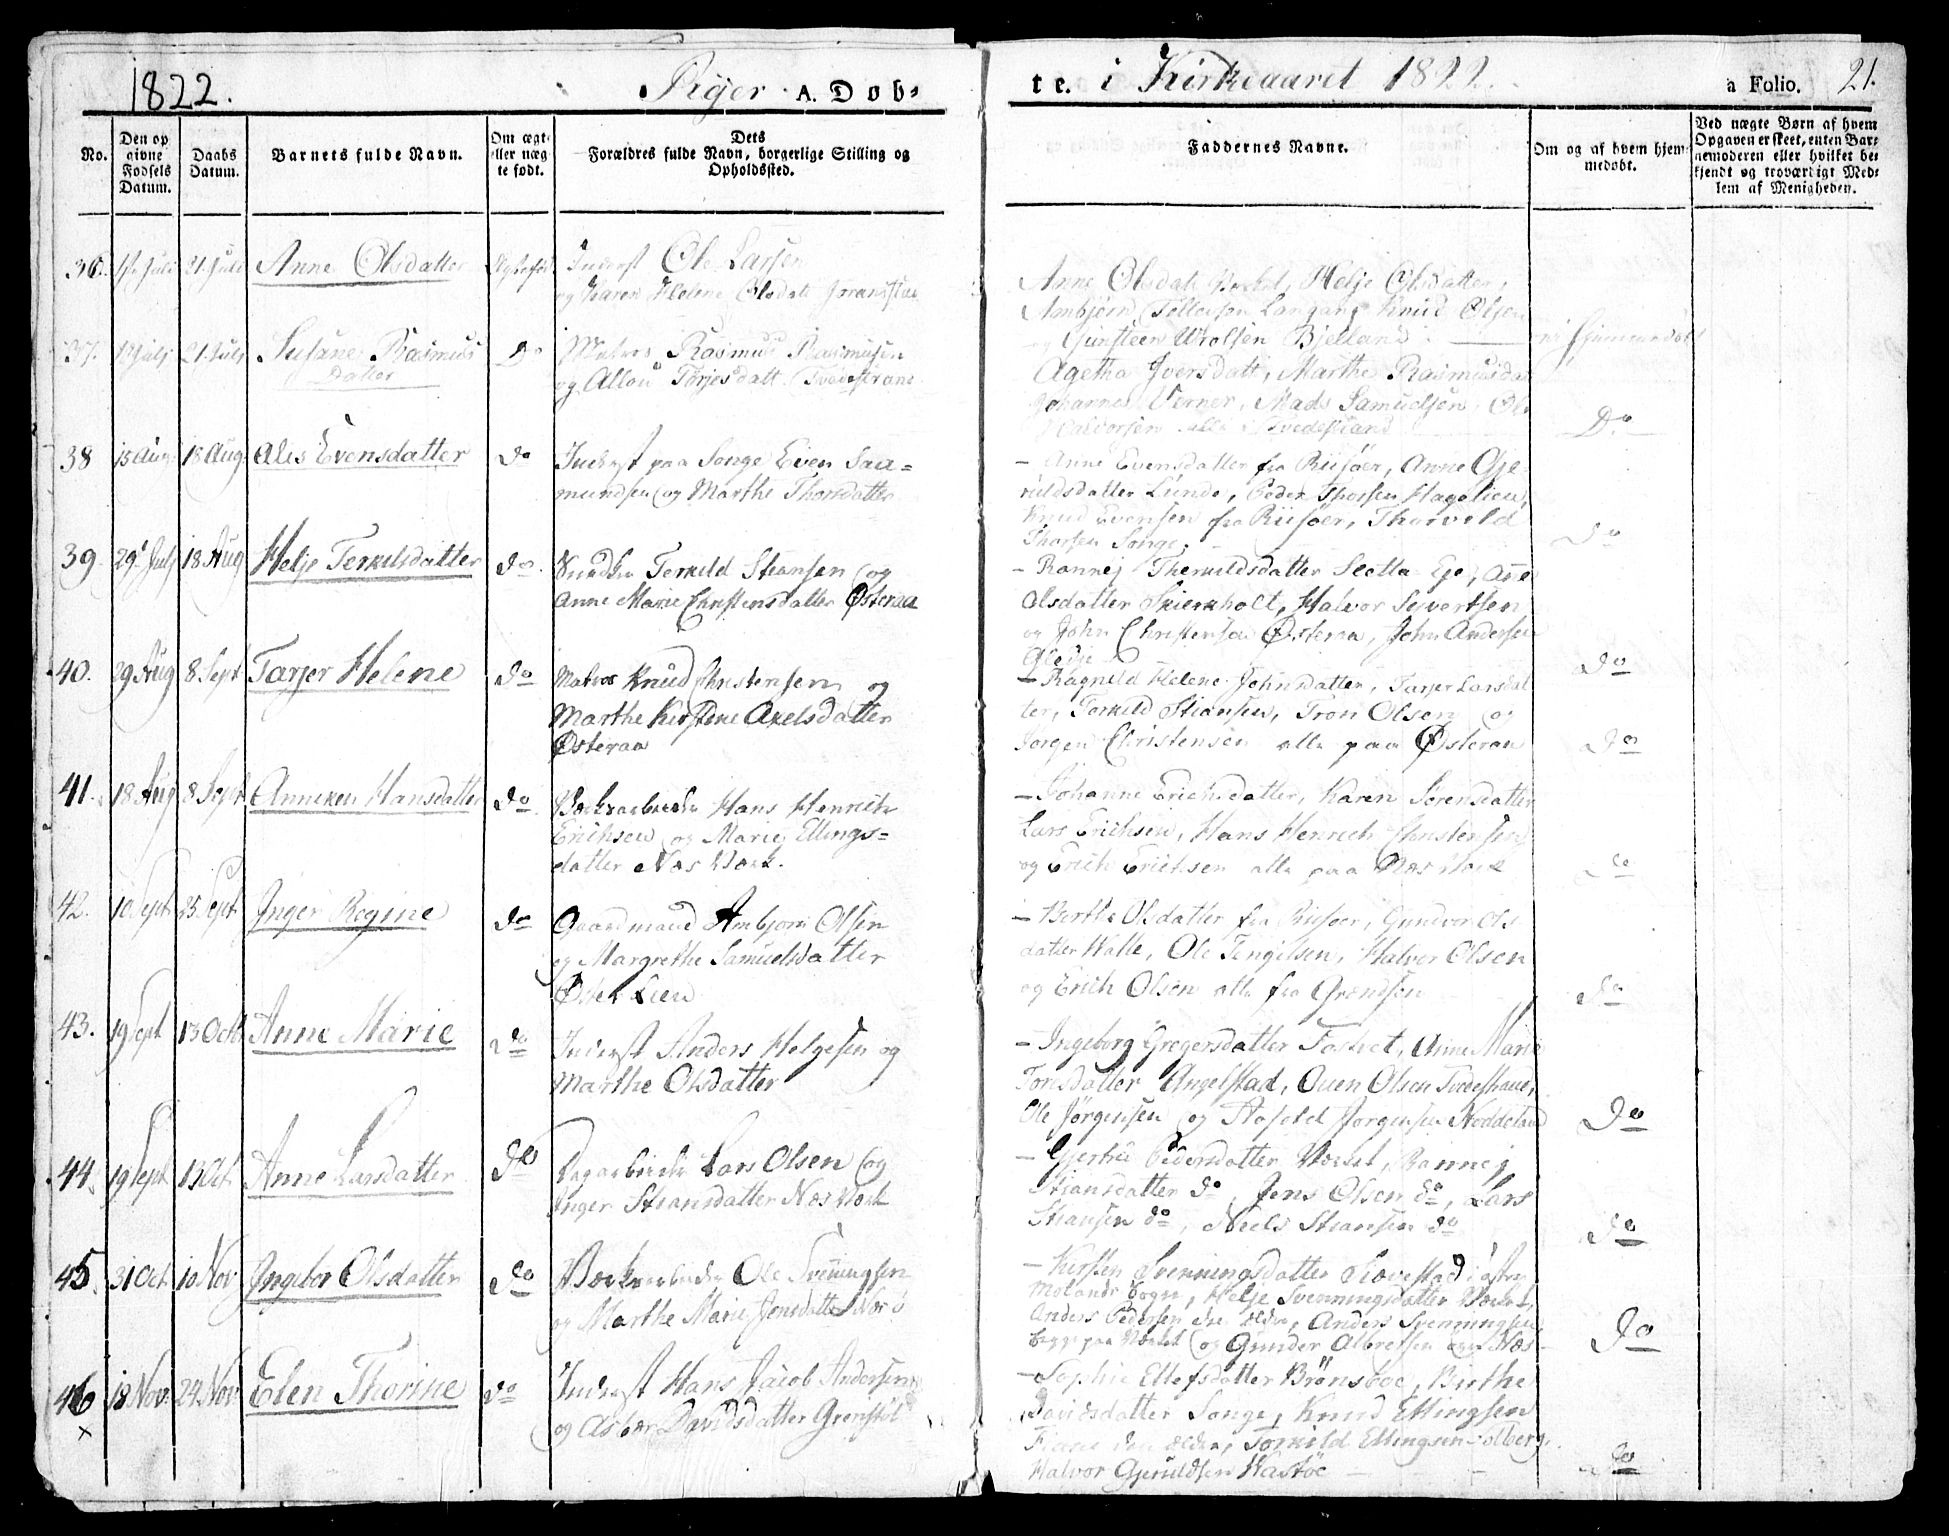 1822.
Piger A. Døb-
te. i Kirkeaaret 1822.
a Folio. 21.
No.
Den op
givne
Fødsels
Datum.
Daabs
Datum.
Barnets fulde Navn.
Om ægte
eller næg-
te født.
Dets
Forældres fulde Navn, borgerlige Stilling og
Opholdssted.
Faddernes Navne.
Om og af hvem hjem-
medøbt.
Ved nægte Børn af hvem
Opgaven er skeet, enten Bar-
nemoderen eller hvilket be-
kjendt og troværdigt Med-
lem af Menigheden.
36. Juli 21. Juli Anne Olsdatter Inderst Ole Larsen
og Karen Helene Olsdatt
Anne Olsdatt Helje Olsdatter,
Ambjørn Tellefsen Langang Knud Olsen
Gunsteen Wrolsen Bjelland
37. 21. July Susane Rasmus
Datter
Do Matros Rasmus Rasmusen
og Allou Torjesdatt. Tvedestrand
Agetha Iversdatt, Marthe Rasmusdat
Johannes Verner, Mads Samuelsen, Ole
Halvorsen alle i Tvedestrand
Do
38 15 Aug 18 Aug Alis Evensdatter do Inderst paa Songe Even Saa-
mundsen og Marthe Thorsdatter
- Anne Evensdatter fra Riisøer, Anne Gje
ruldsdatter Lunde, Peder Thorsen Hagelien,
Knud Evensen fra Riisøer, Thorvald
Thorsen Songe.
do
39 29 July 18 Aug Helje Terkelsdatter do Terkeld Stiansen og
Anne Marie Christensdatter Østeraa
- Rannej Therkeldsdatter Slotta Eje, Anne
Olsdatter Skierkholt, Halvor Sivertsen
og John Christensen Østeraa, John Andersen
Gledje
do
40. 29 Aug 8 Sept Tarjer Helene do Matros Knud Christensen og
Marthe Kirstene Axelsdatter
Østeraa
- Ragnild Helene Johnsdatter, Tarjer Larsdat
ter, Terkeld Stiansen, Tron Olsen og
Jørgen Christensen alle paa Østeraa
do
41. 18 Aug 8 Sept Anneken Hansdatter do Værksarbeider Hans Henrich
Erichsen og Marie Ellings-
datter Næs Værk.
- Johanne Erichsdatter, Karen Sørensdatter
Lars Erichsen, Hans Henrich Christensen
og Erich Erichsen alle paa Næs Værk
do
42. 10 Sept 25 Sept Inger Regine do Gaardmand Ambjørn Olsen
og Margrethe Samuelsdatter
Øster Lien
- Berthe Olsdatter fra Riisøer, Gundvor Ols
datter Walle, Ole Tengelsen, Halvor Olsen
og Erich Olsen alle fra Grændsen
do
43. 19 Sept 13 Octb Anne Marie do Inderst Anders Helgesen og
Marthe Olsdatter
- Ingeborg Gregersdatter Fosket, Anne Marie
Tonsdatter Angelstad, Ouen Olsen
Ole Jørgensen og Jørgensen Noddeland
do
44. 19 Sept 13 Oct. Anne Larsdatter do Dagarbeider Lars Olsen og
Inger Stiansdatter Næs Værk
- Gjertru Pedersdatter Værket, Rannej
Stiansdatter do, Jens Olsen do, Lars
Stiansen do, Niels Stiansen do
do
45. 31 Oct. 10 Nov Ingebor Olsdatter do Værksarbeider Ole Svenningsen
og Marthe Marie Jensdatter
- Kirsten Svenningsdatter i østre
Molands Sogn, Helje Svenningsdatter Værket,
Anders Pedersen den ældre, Anders Svenningsen
begge paa Værket og Gunder Albretsen Næs
do
46 18 Nov. 24 Nov Elen Thorine do Inderst Hans Jacob Andersen
og Asber Davidsdatter Grenstøl
x
- Sophie Ellefsdatter Brønsboe, Birthe
Davidsdatter Songe, Knud Ellingsen
Fiane den ældre, Torkild Ellingsen Solberg,
Halvor Gjeruldsen Hastøe
do